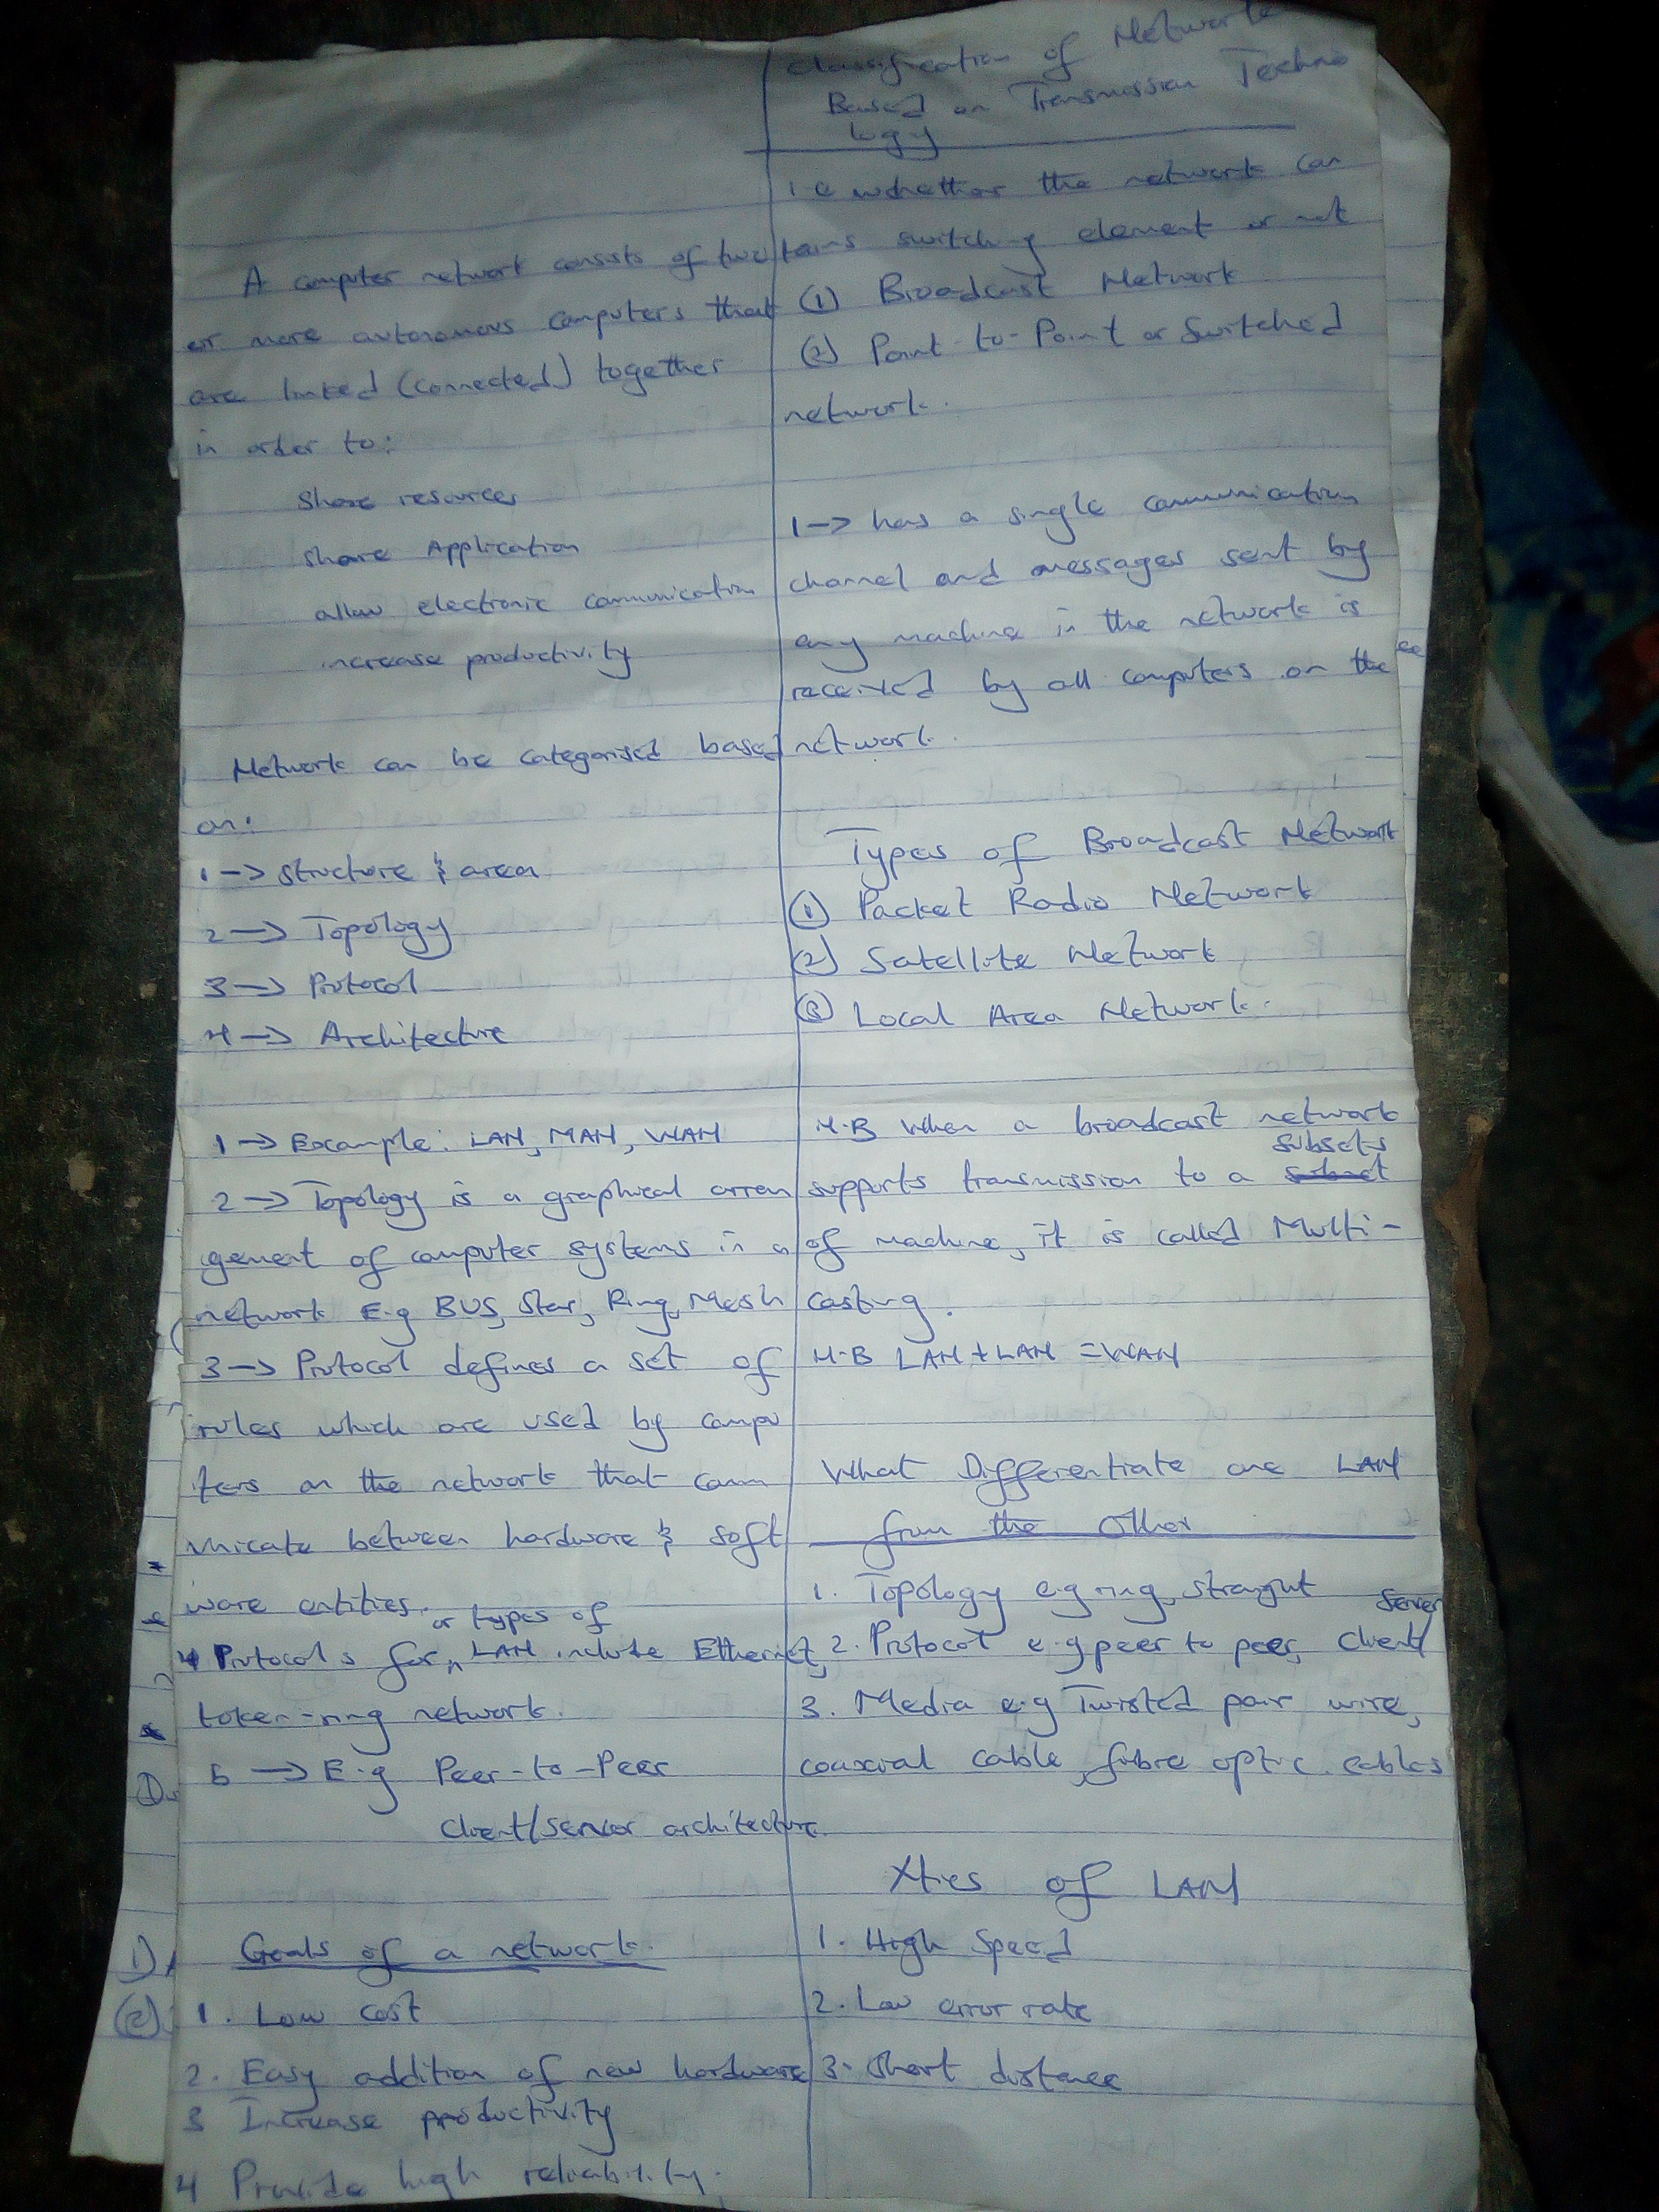 A computer network consists of two
or more autonomous computers that
are linked (connected) together
in order to:
Share resources
Share Application
allow electronic communication
increase productivity
Network can be categorised based
on:
1 -> structure & area
2 -> Topology
3 -> Protocol
4 -> Architecture
1 -> Example: LAN, MAN, WAN
2 -> Topology is a graphical arran
gement of computer systems in a
network E.g BUS, Star, Ring, Mesh
3 -> Protocol defines a set of
rules which are used by compu
ters on the network that comm
unicate between hardware & soft
ware entities.
or types of
4 Protocols for LAN include Ethernet,
token-ring network.
5 -> E.g Peer-to-Peer
Client/Server architecture.
Goals of a network.
1. Low cost
2. Easy addition of new hardware
3 Increase productivity
4 Provide high reliability.
Classification of Networks
Based on Transmission Techno
logy
i.e whether the network con
tains switching element or not
(1) Broadcast Network
(2) Point-to-Point or Switched
network.
1 -> has a single communication
channel and messages sent by
any machine in the network is
received by all computers on the
network.
Types of Broadcast Network
(1) Packet Radio Network
(2) Satellite Network
(3) Local Area Network.
N.B When a broadcast network
subsets
supports transmission to a subnet
of machine, it is called Multi-
casting.
N.B LAN + LAN = WAN
What Differentiate one LAN
from the Other
1. Topology e.g ring, straight
Server
2. Protocol e.g peer to peer, Client/
3. Media e.g Twisted pair wire,
coaxial cable, fibre optic cables
Xties of LAN
1. High Speed
2. Low error rate
3. Short distance
1)
(2)